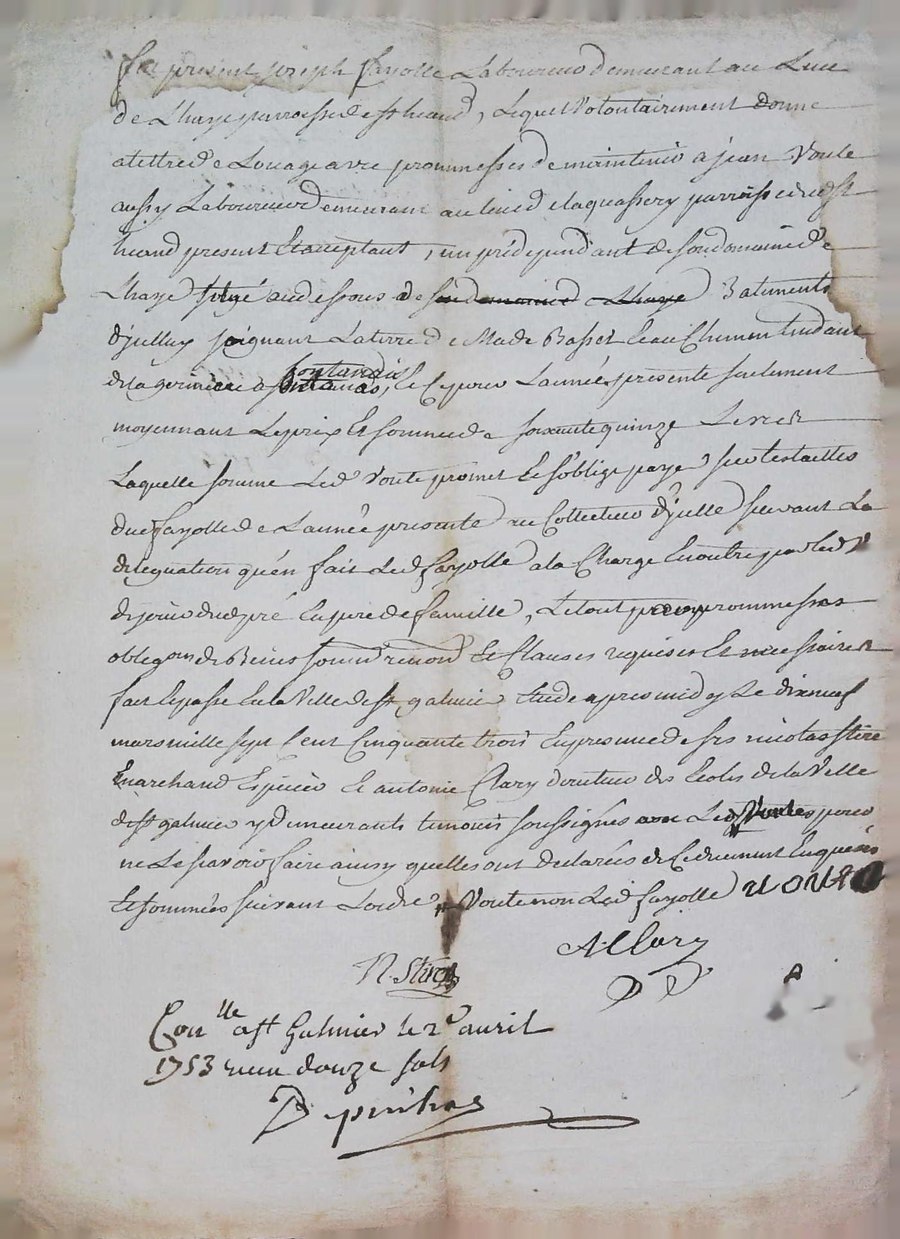 fut present joseph fayolle Laboureur demeurant au Lieu
de Lhaye parroisse de st heand, Lequel volontairement donne
a tittre de Louage avec prommesses de maintenir a jean Voute
aussy Laboureur demeurant au lieu de laquassery parroisse dud st
heand present et acceptant, un pré dependant de son domaine de
Lhaye situé au dessous de son domaine de Lhaye Batiments
d'jcelluy joignant La terre de Made Basset et au Chemin tendant
de la germiere a fontanais fontanais, et ce pour L'année presente seulement
moyennant Le prix et somme de soixante quinze Livres
Laquelle somme Led Voute promet et s'oblige payer sur les tailles
dud fayolle de L'année presente au Collecteur d'jcelle suivant La
delegation qu'en fait Led fayolle a la Charge en outre par led V
de jouir dud pré en pere de famille, Le tout par prommesses
obligons de Biens soumons renons et Clauses requises et necessaires
fait et passé en la Ville de st galmier Etude apres midy Le dix neuf
mars mille sept Cent Cinquante trois En presence de frs nicolas Stire
marchand Epicier et antoine Clary directeur des Ecoles de la Ville
de st galmier y demeurants temoins soussignés avec Led Voute pour
ne Le savoir faire ainsy quelles ont declarées de Ce duement Enquis
et sommées suivant L'ordce Voute non Led fayolle Voute
AClary
N Stire
Conlle a st Galmier le 2e auril
1753 recu douze sols